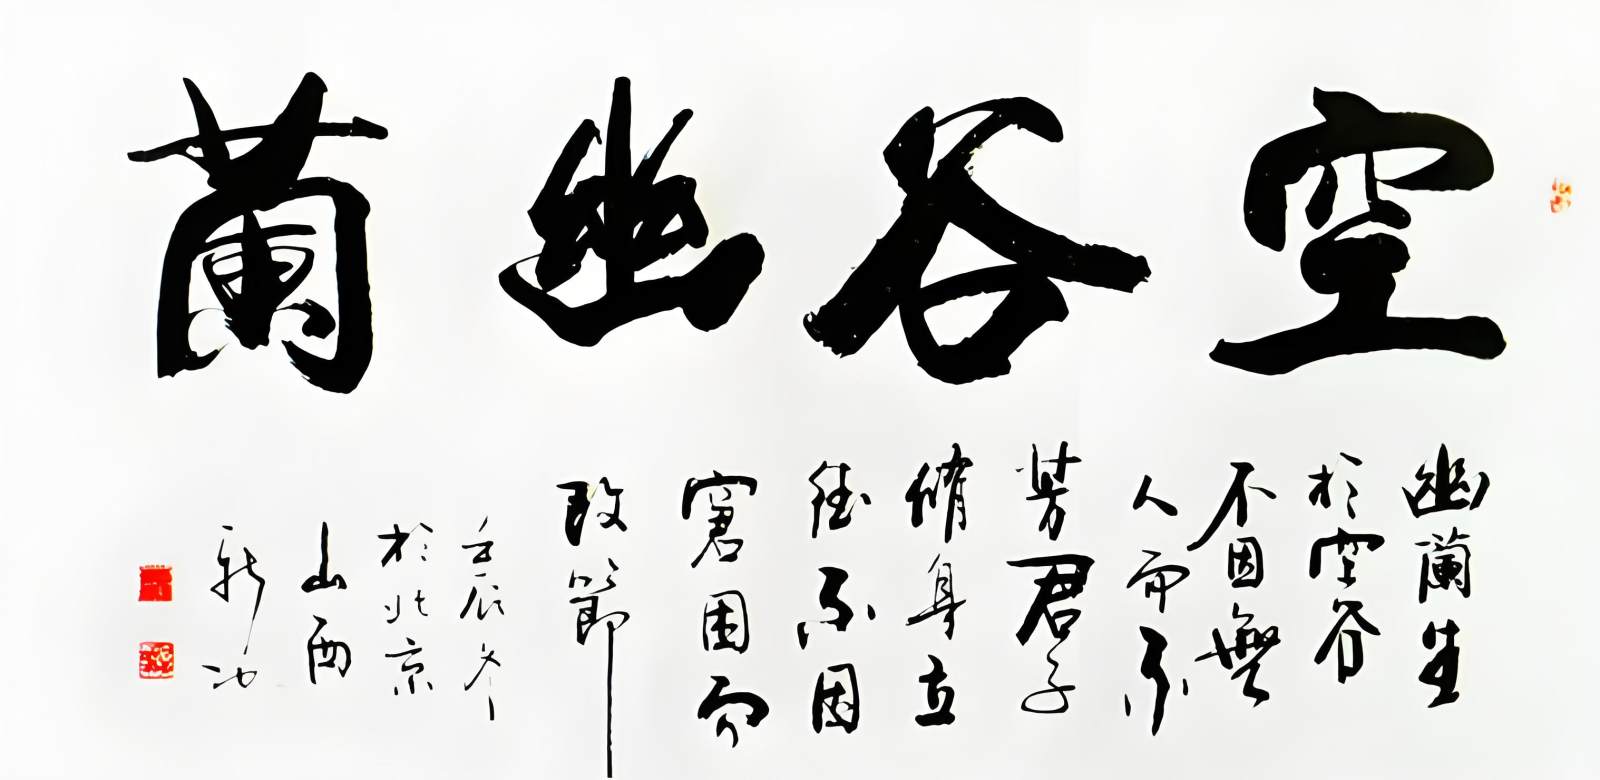 空谷幽蘭
幽蘭生
於空谷
不因無
人而不
芳君子
脩身立
德不因
窘困而
改節
壬辰冬
於北京
山西